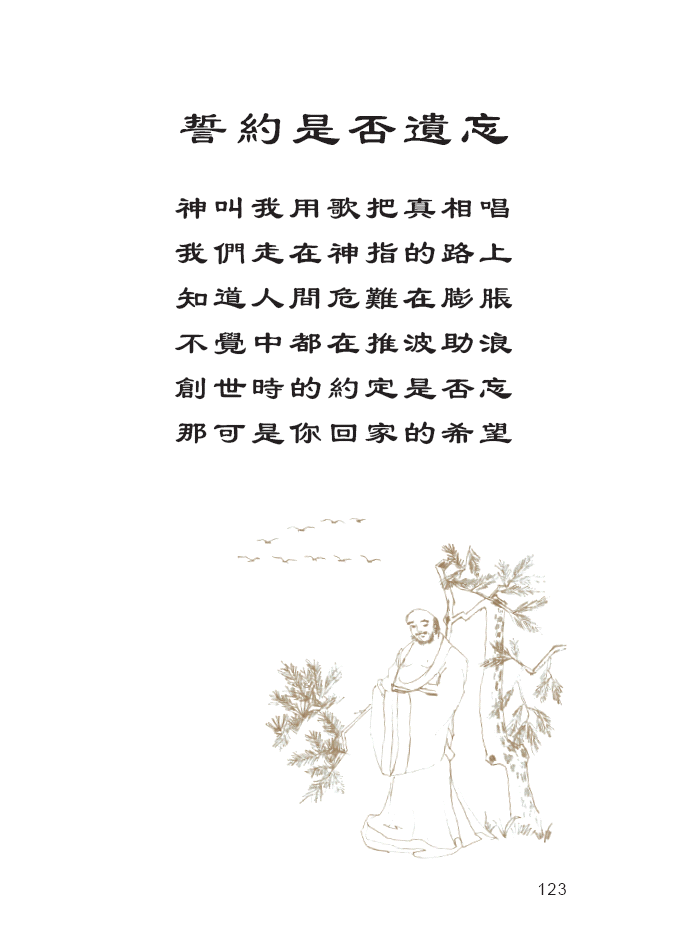 誓約是否遺忘
神叫我用歌把真相唱
我們走在神指的路上
知道人間危難在膨脹
不覺中都在推波助浪
創世時的約定是否忘
那可是你回家的希望
123